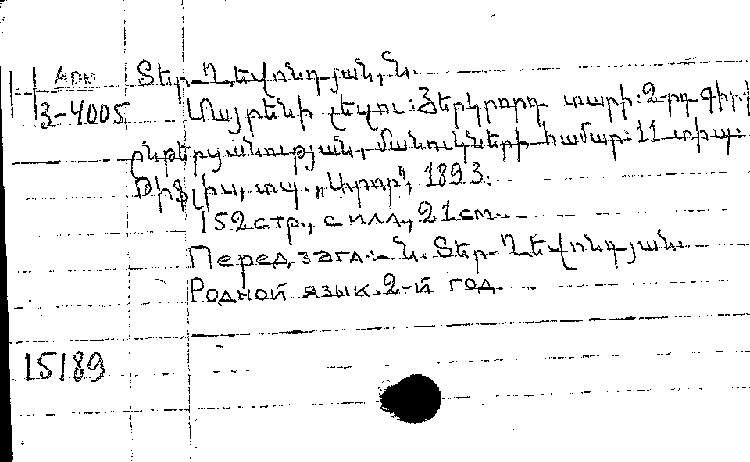 Арм
3-4005
Տեր-Ղևոնդյան, Ն.
Մայրենի լեզու: Երկրորդ տարի: 2-րդ գիրք
ընթերցանության, մանուկների համար: 11 տիպ.
Թիֆլիս, տպ. „Կիրոր", 1893.
152 стр., с илл., 21 см.
Перед загл.: Ն. Տեր-Ղևոնդյան.
Родной язык. 2-й год.
15189